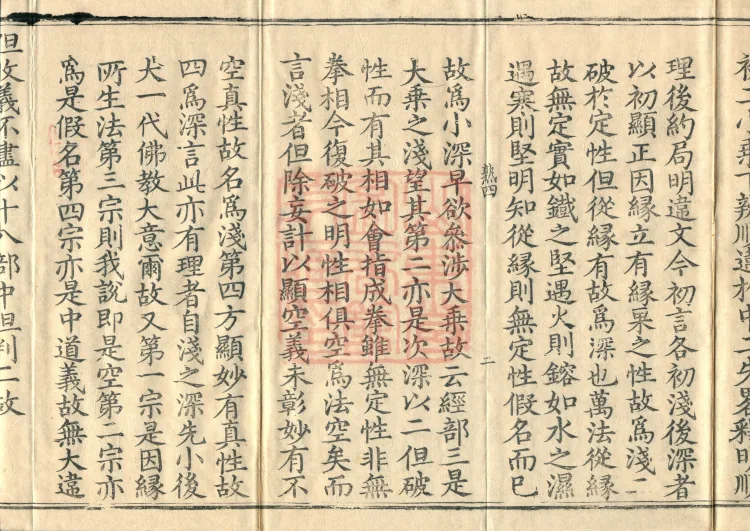 理後約局明違文今初言各初淺後深者
以初顯正因緣立有緣果之性故爲淺二
破於定性但從緣有故爲深也萬法從緣
故無定實如鐵之堅遇火則鎔如水之濕
遇寒則堅明知從緣則無定性假名而已
熟四
二
故爲小深早欲叅涉大乗故云經部三是
大乗之淺望其第二亦是次深以二但破
性而有其相如會指成拳雖無定性非無
拳相今復破之明性相俱空爲法空矣而
言淺者但除妄計以顯空義未彰妙有不
空真性故名爲淺第四方顯妙有真性故
四爲深言此亦有理者自淺之深先小後
大一代佛教大意爾故又第一宗是因緣
所生法第三宗則我說即是空第二宗亦
爲是假名第四宗亦是中道義故無大違
但收義不盡以十八部中但判二故